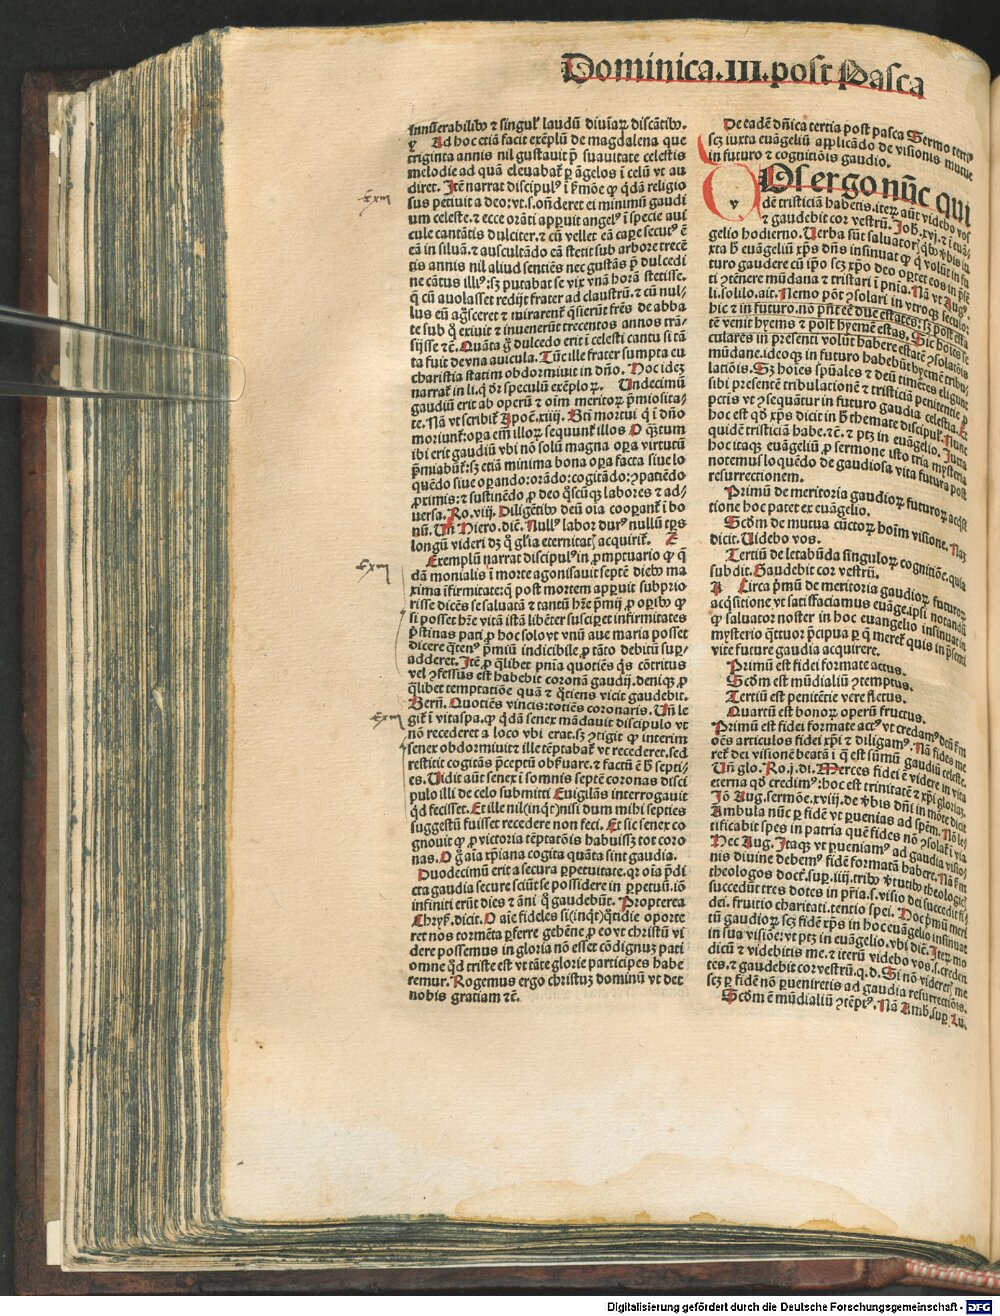 Dominica.III.post Pasca
innūerabiliƀꝰ ⁊ singul' laudū diuīaꝝ discātiƀꝰ.
y Ad hoc etiā facit exēplū de magdalena que
triginta annis nil gustauit p̄ suauitate celestis
melodie ad quā eleuabat̄ ꝑ āgelos ī celū vt au
diret. Itē narrat discipulꝰ ī ẜmōe ꝙ q̄dā religio
sus petiuit a deo: vt.s. oñderet ei minimū gaudi
um celeste. ⁊ ecce orāti apꝑuit angelꝰ ī specie aui
cule cantātis dulciter. ⁊ cū vellet eā caꝑe secutꝰ ē
eā in siluā. ⁊ auscultādo eā stetit sub arbore trecē
tis annis nil aliud sentiēs nec gustās p̄ dulcedi
ne cātus illiꝰ: sꝫ putabat se vix vnā horā stetisse.
q̄ cū auolasset redijt frater ad claustrū. ⁊ cū nul/
lus eū agn̄sceret ⁊ mirarent̄ q̄sierūt fr̄es de abba
te sub q̊ exiuit ⁊ inuenerūt trecentos annos trā/
sijsse ⁊ć. Quāta g̊ dulcedo erit ī celesti cantu si tā
ta fuit de vna auicula. Tūc ille frater sumpta eu
charistia statim obdormiuit in dño. Hoc idēꝫ
narrat̄ in li. q̄ dr̄ speculū exēploꝝ. Undecimū
gaudiū erit ab operū ⁊ oīm meritoꝝ p̄miosita/
te. Nā vt scribit̄ Apoc̄. xiiij. Bt̄i mortui q̄ ī dño
moriunt̄: oꝑa em̄ illoꝝ sequunt̄ illos O q̄ꝫtum
ibi erit gaudiū vbi nō solū magna oꝑa virtutū
p̄miabūt̄: sꝫ etiā minima bona oꝑa facta siue lo
quēdo siue oꝑando: orādo: cogitādo: ꝯpatiēdo
ꝓximis: ⁊ sustinēdo ꝓ deo q̄scūqꝫ labores ⁊ ad/
uersa. Ro. viij. Diligētiƀꝰ deū oīa cooꝑant̄ ī bo
nū. Uñ Hiero. dic̄. Nullꝰ labor durꝰ nullū tꝑs
longū videri dꝫ q̄ gl̄ia eternitat̄ acquirit̄. Z
Exemplū narrat discipulꝰ in ꝓmptuario ꝙ q̄
dā monialis ī morte agonisauit septē dieƀꝰ ma
xima īfirmitate: q̄ post mortem apꝑuit subprio
risse dicēs se saluatā ⁊ tantū hr̄e p̄mij ꝓ oꝑiƀꝰ ꝙ
si posset hr̄e vitā istā libēter suscipet infirmitates
p̄stinas pati ꝓ hoc solo vt vnū aue maria posset
dicere q̄tenꝰ p̄miū indicibile ꝓ tāto debitū suꝑ/
adderet. Itē ꝓ q̄libet pn̄ia quotiēs q̄s cōtritus
vel ꝯfessus est habebit coronā gaudij. deniqꝫ ꝓ
q̄libet temptatiōe quā ⁊ q̄tiens vicit gaudebit.
Bern̄. Quotiēs vincis: toties coronaris. Uñ le
git̄ ī vitaspa. ꝙ q̄dā senex mādauit discipulo vt
nō recederet a loco vbi erat. sꝫ ꝯtigit ꝙ interim
senex obdormiuit ⁊ ille tēptabat̄ vt recederet. sed
restitit cogitās p̄ceptū obẜuare. ⁊ factū ē ħ septi/
es. Uidit aūt senex ī somnis septē coronas disci
pulo illi de celo submitti Euigilās interrogauit
q̊d fecisset. Et ille nil (inq̄t) nisi dum mihi septies
suggestū fuisset recedere non feci. Et sic senex co
gnouit ꝙ ꝓ victoria tēptatōis habuissꝫ tot coro
nas. O g̊ aīa xp̄iana cogita quāta sint gaudia.
Duodecimū erit a secura ꝑpetuitate. qꝛ oīa p̄di
cta gaudia secure sciūt se possidere in ꝑpetuū. iō
infiniti erūt dies ⁊ āni q̄ gaudebūt. Propterea
Chryẜ. dicit. O aīe fideles si (inq̄t) q̊tidie oporte
ret nos tormēta ꝑferre gehēne ꝓ eo vt christū vi
dere possemus in gloria nō esset cōdignuꝫ pati
omne q̊d triste est vt tāte glorie participes habe
remur. Rogemus ergo christuꝫ dominū vt det
nobis gratiam ⁊ć.
De eadē dn̄ica tertia post pasca Sermo terti
scꝫ iuxta euāgeliū applicādo de visionis mutue
in futuro ⁊ cognitiōis gaudio.
v Os ergo nūc qui
dē tristiciā habetis. iteꝝ aūt videbo vos
⁊ gaudebit cor vestrū. Joh̄. xvj. ⁊ ī euā/
gelio hodierno. Uerba sūt saluatorꝭ q̄ƀꝰ v̄bis iu
xta ħ euāgeliū xp̄s dn̄s insinuat ꝙ q̄ volūt in fu
turo gaudere cū ip̄o scꝫ xp̄o deo oꝑtet eos in p̄sē
ti ꝯtēnere mūdana ⁊ tristari ī pn̄ia. Nā vt Augꝰ.
li. solilo. ait. Nemo pōt ꝯsolari in vtroqꝫ seculo:
hic ⁊ in futuro. nō pn̄t eē due estates: sꝫ post esta
tē venit hyems ⁊ post hyemē estas. Sic hoīes se
culares in presenti volūt habere estatē ꝯsolatōis
mūdane. ideoqꝫ in futuro habebūt hyemē tribu/
latiōis. Sꝫ hoīes spūales ⁊ deū timētes eligunt
sibi presentē tribulationē ⁊ tristiciā penitentie ꝓ
pctīs vt ꝯsequātur in futuro gaudia celestia. Et
hoc est q̊d xp̄s dicit in ħ themate discipul̄. Nunc
quidē tristiciā habe. ⁊ć. ⁊ ptꝫ in euāgelio. Juxta
hoc itaqꝫ euāgeliū ꝓ sermone isto tria mysteria
notemus loquēdo de gaudiosa vita futura post
resurrectionem.
Primū de meritoria gaudioꝝ futuroꝝ acq̄si
tione hoc patet ex euāgelio.
Scd̄m de mutua cūctoꝝ hoīm visione. Naꝫ
dicit. Uidebo vos.
Tertiū de letabūda singuloꝝ cognitiōe. quia
subdit. Gaudebit cor vestrū.
A Circa p̄mū de meritoria gaudioꝝ futuroꝝ
acq̄sitione vt satisfaciamus euāge. ipsi notandū
ꝙ saluator noster in hoc euangelio insinuat in
mysterio q̄ttuor p̄cipua ꝑ q̄ meret̄ quis in p̄senti
vite future gaudia acquirere.
Primū est fidei formate actus.
Scd̄m est mūdialiū ꝯtemptus.
Tertiū est penitētie vere fletus.
Quartū est bonoꝝ operū fructus.
Primū est fidei formate actꝰ vt credamꝰ deū ẜm
oēs articulos fidei xp̄i ⁊ diligamꝰ. Nā fides me
ret̄ dei visionē beatā ī q̄ est sūmū gaudiū celeste.
Uñ glo. Ro. j. di. Merces fidei ē videre in vita
eterna q̊d credimꝰ: hoc est trinitatē ⁊ xp̄i gloriaꝫ.
Jō Aug. sermōe. xviij. de v̄bis dn̄i in mōte dicit
Ambula nūc ꝑ fidē vt ꝑuenias ad spēm. Nō le/
tificabit spes in patria quē fides nō ꝯsolat̄ ī via
Hec Aug. Itaqꝫ vt ꝑueniamꝰ ad gaudia visio/
nis diuine debemꝰ fidē formatā habere. Nā ẜm
theologos doct̄. suꝑ. iiij. triƀꝰ v̄tutiƀꝰ theologicꝭ
succedūt tres dotes in pr̄ia. s. visio dei succedit fi/
dei. fruitio charitati. tentio spei. Hoc p̄mū meri
tū gaudioꝝ scꝫ fidē xp̄s in hoc euāgelio insinuat
in sua visiōe: vt ptꝫ in euāgelio. vbi dic̄. Iteꝝ mo
dicū ⁊ videbitis me. ⁊ iterū videbo vos. s. creden
tes. ⁊ gaudebit cor vestrū. q. d. Si nō videret̄ me
scꝫ ꝑ fidē nō ꝑuenietis ad gaudia resurrectiōis.
Scd̄m ē mūdialiū ꝯtēptꝰ. Nā Amb. suꝑ Lu.
Digitalisierung gefördert durch die Deutsche Forschungsgemeinschaft - DFG